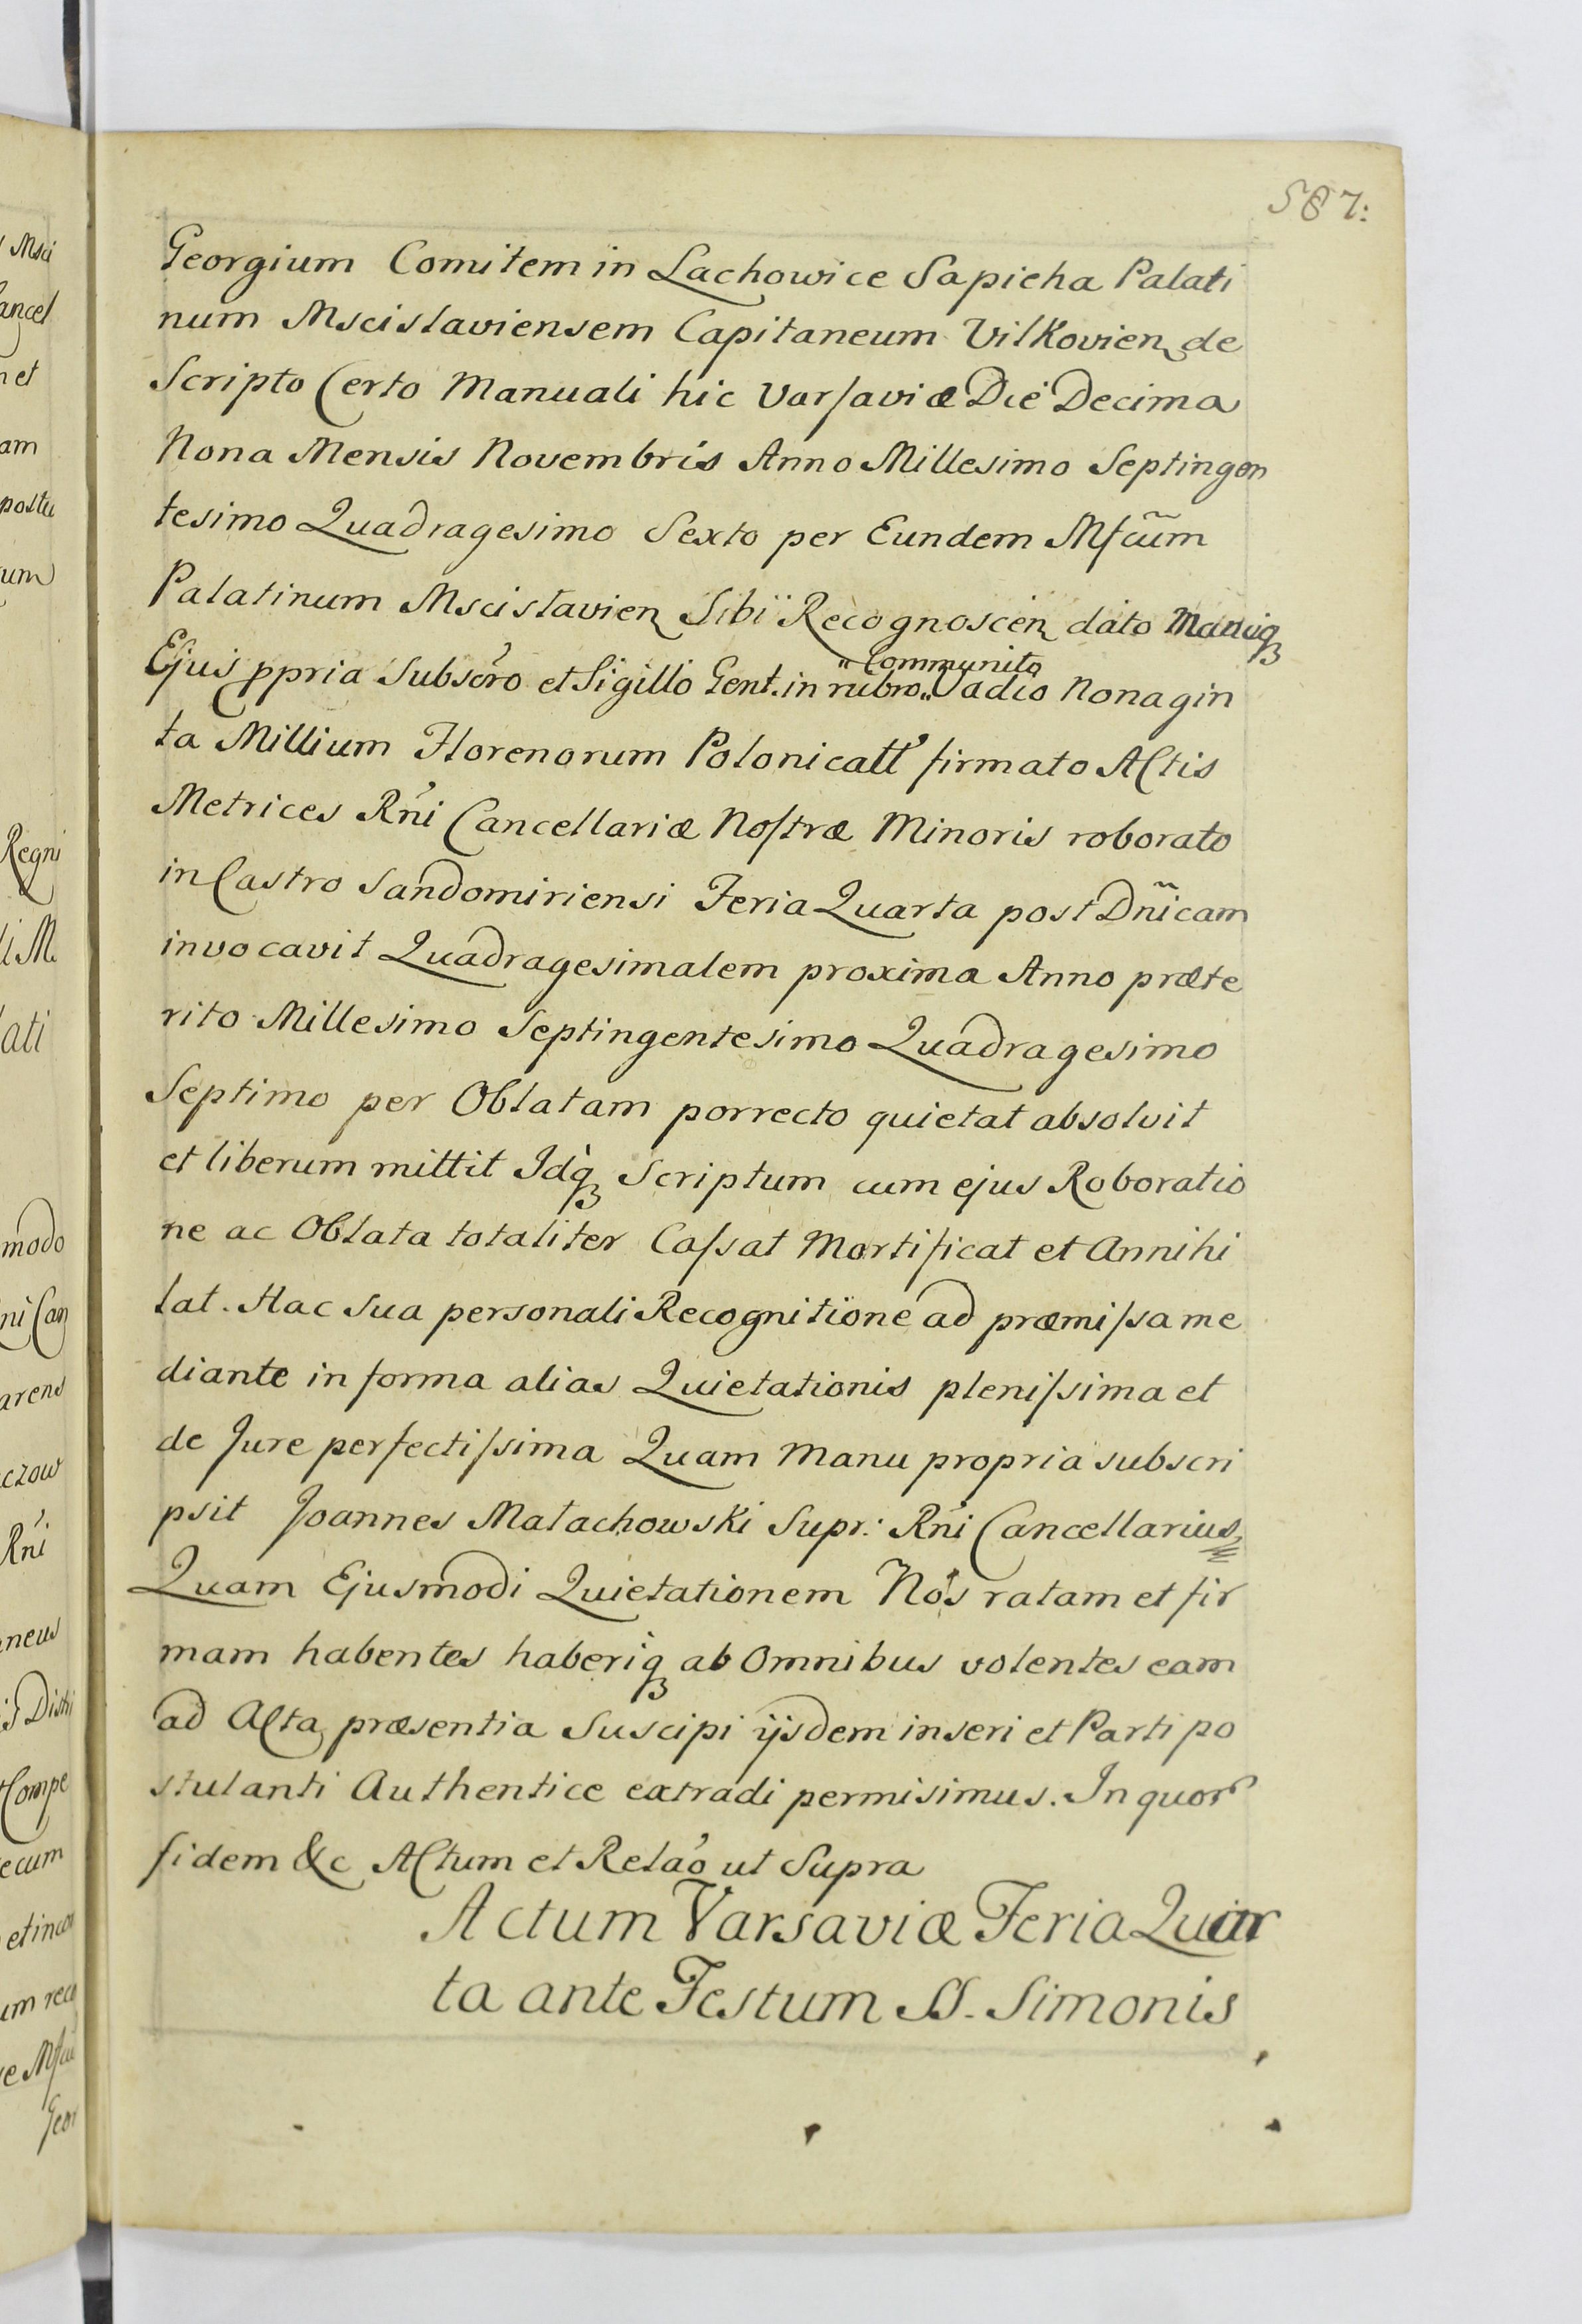 587:
Georgium Comitem in Lachowice Sapieha Palati
num Mscislaviensem Capitaneum Vilkovien de
Scripto Certo Manuali hic Varsaviæ Die Decima
Nona Mensis Novembris Anno Millesimo Septingen
tesimo Quadragesimo Sexto per Eundem Mfcum
Palatinum Mscislavien Sibi Recognoscen dato Manuq
Ejus ppria Subscro et Sigillo Gent. in rubro Communito Vadio Nonagin
ta Millium Florenorum Polonicall firmato Actis
Metrices Rni Cancellariæ Nostræ Minoris roborato
in Castro Sandomiriensi Feria Quarta post Dnicam
invocavit Quadragesimalem proxima Anno præte
rito Millesimo Septingentesimo Quadragesimo
Septimo per Oblatam porrecto quietat absolvit
et liberum mittit Idq Scriptum cum ejus Roboratio
ne ac Oblata totaliter Cassat Mortificat et Annihi
lat. Hac Sua personali Recognitione ad præmissa me
diante in forma alias Quietationis plenissima et
de Jure perfectissima Quam Manu propria subscri
psit Joannes Małachowski Supr: Rni Cancellarius
Quam Ejusmodi Quietationem Nos ratam et fir
mam habentes haberiq ab Omnibus volentes eam
ad Acta præsentia Suscipi ijsdem inseri et Parti po
stulanti Authentice extradi permisimus. In quor
fidem &c Actum et Relao ut Supra
Actum Varsaviæ Feria Quar
ta ante Festum SS. Simonis